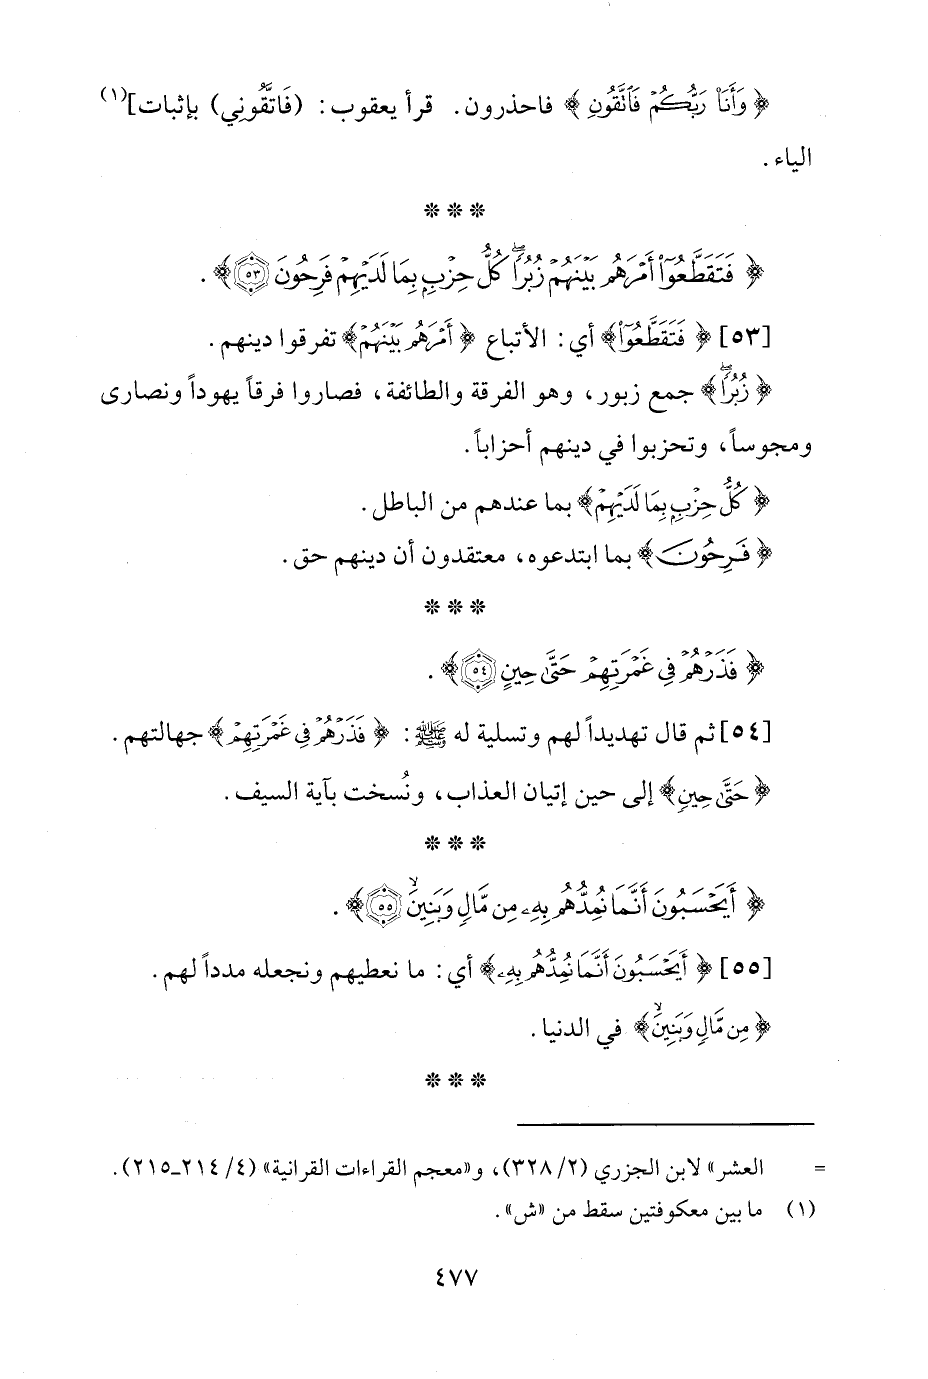 ﴿ وَأَنَا۠ رَبُّكُمْ فَٱتَّقُونِ ﴾ فاحذرون. قرأ يعقوب: (فَاتَّقُونِي) بإثبات](١)
الياء.
* * *
﴿ فَتَقَطَّعُوٓا۟ أَمْرَهُم بَيْنَهُمْ زُبُرًا ۖ كُلُّ حِزْبٍۭ بِمَا لَدَيْهِمْ فَرِحُونَ ٥٣﴾.
[٥٣] ﴿ فَتَقَطَّعُوٓا۟﴾ أي: الأتباع ﴿ أَمْرَهُم بَيْنَهُمْ﴾ تفرقوا دينهم.
﴿ زُبُرًا ۖ﴾ جمع زبور، وهو الفرقة والطائفة، فصاروا فرقاً يهوداً ونصارى
ومجوساً، وتحزبوا في دينهم أحزاباً.
﴿ كُلُّ حِزْبٍۭ بِمَا لَدَيْهِمْ﴾ بما عندهم من الباطل.
﴿ فَرِحُونَ ﴾ بما ابتدعوه، معتقدون أن دينهم حق.
* * *
﴿ فَذَرْهُمْ فِى غَمْرَتِهِمْ حَتَّىٰ حِينٍ ٥٤﴾.
[٥٤] ثم قال تهديداً لهم وتسلية له ﷺ: ﴿ فَذَرْهُمْ فِى غَمْرَتِهِمْ﴾ جهالتهم.
﴿ حَتَّىٰ حِينٍ﴾ إلى حين إتيان العذاب، ونُسخت بآية السيف.
* * *
﴿ أَيَحْسَبُونَ أَنَّمَا نُمِدُّهُم بِهِۦ مِن مَّالٍ وَبَنِينَ ۙ ٥٥﴾.
[٥٥] ﴿ أَيَحْسَبُونَ أَنَّمَا نُمِدُّهُم بِهِۦ﴾ أي: ما نعطيهم ونجعله مدداً لهم.
﴿ مِن مَّالٍ وَبَنِينَ ۙ﴾ في الدنيا.
* * *
= العشر» لابن الجزري (٢/ ٣٢٨)، و«معجم القراءات القرانية» (٤/ ٢١٤ـ٢١٥).
(١) ما بين معكوفتين سقط من «ش».
٤٧٧